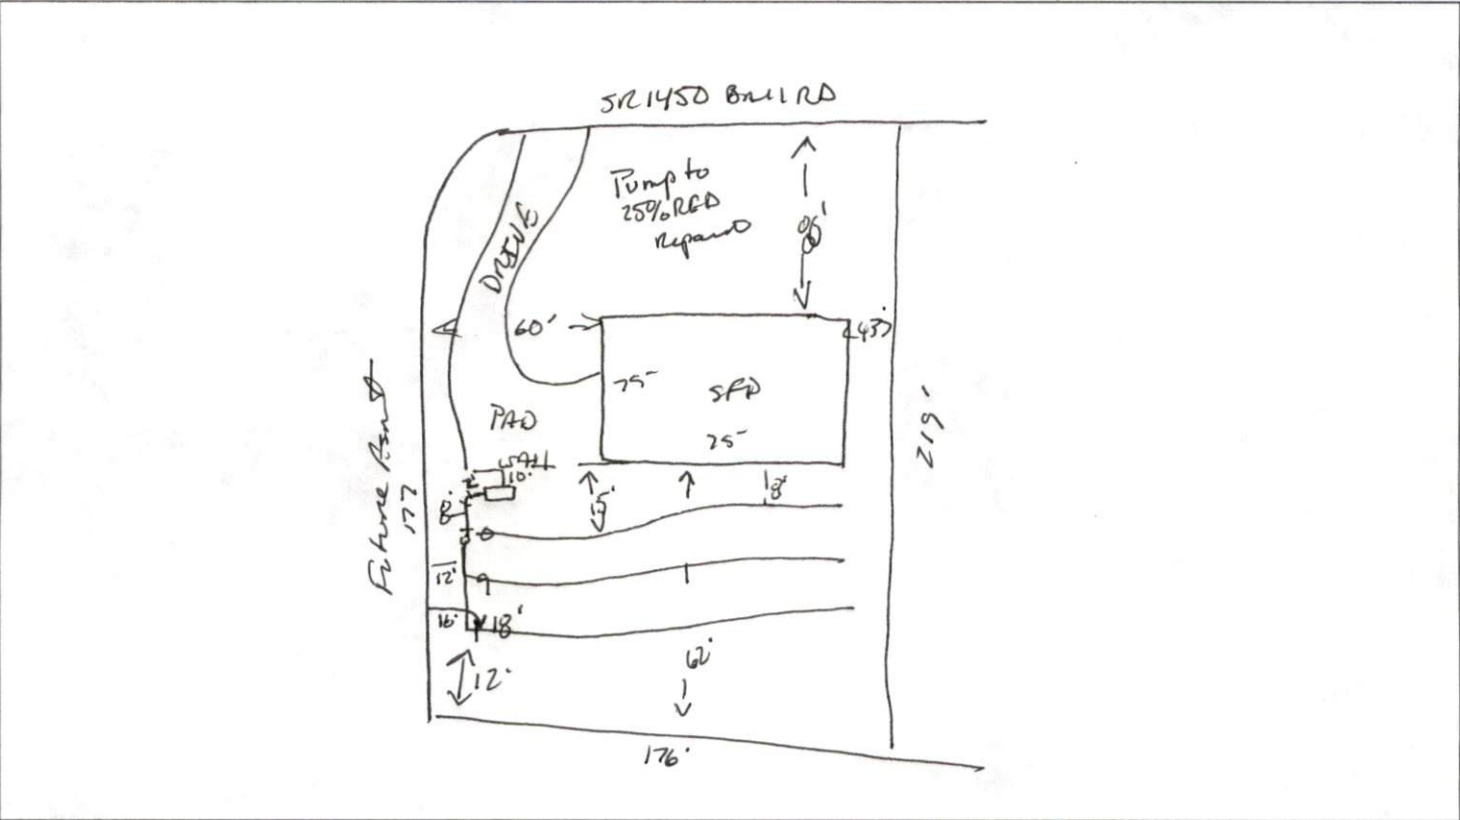 SR 1450 Ball RD
Pump to
25% RED
Repair
DRIVE
80'
60'
43'
75'
SFD
75'
219'
PAD
10'
Future
177
8'
15'
8'
12'
16'
18'
12'
62'
176'